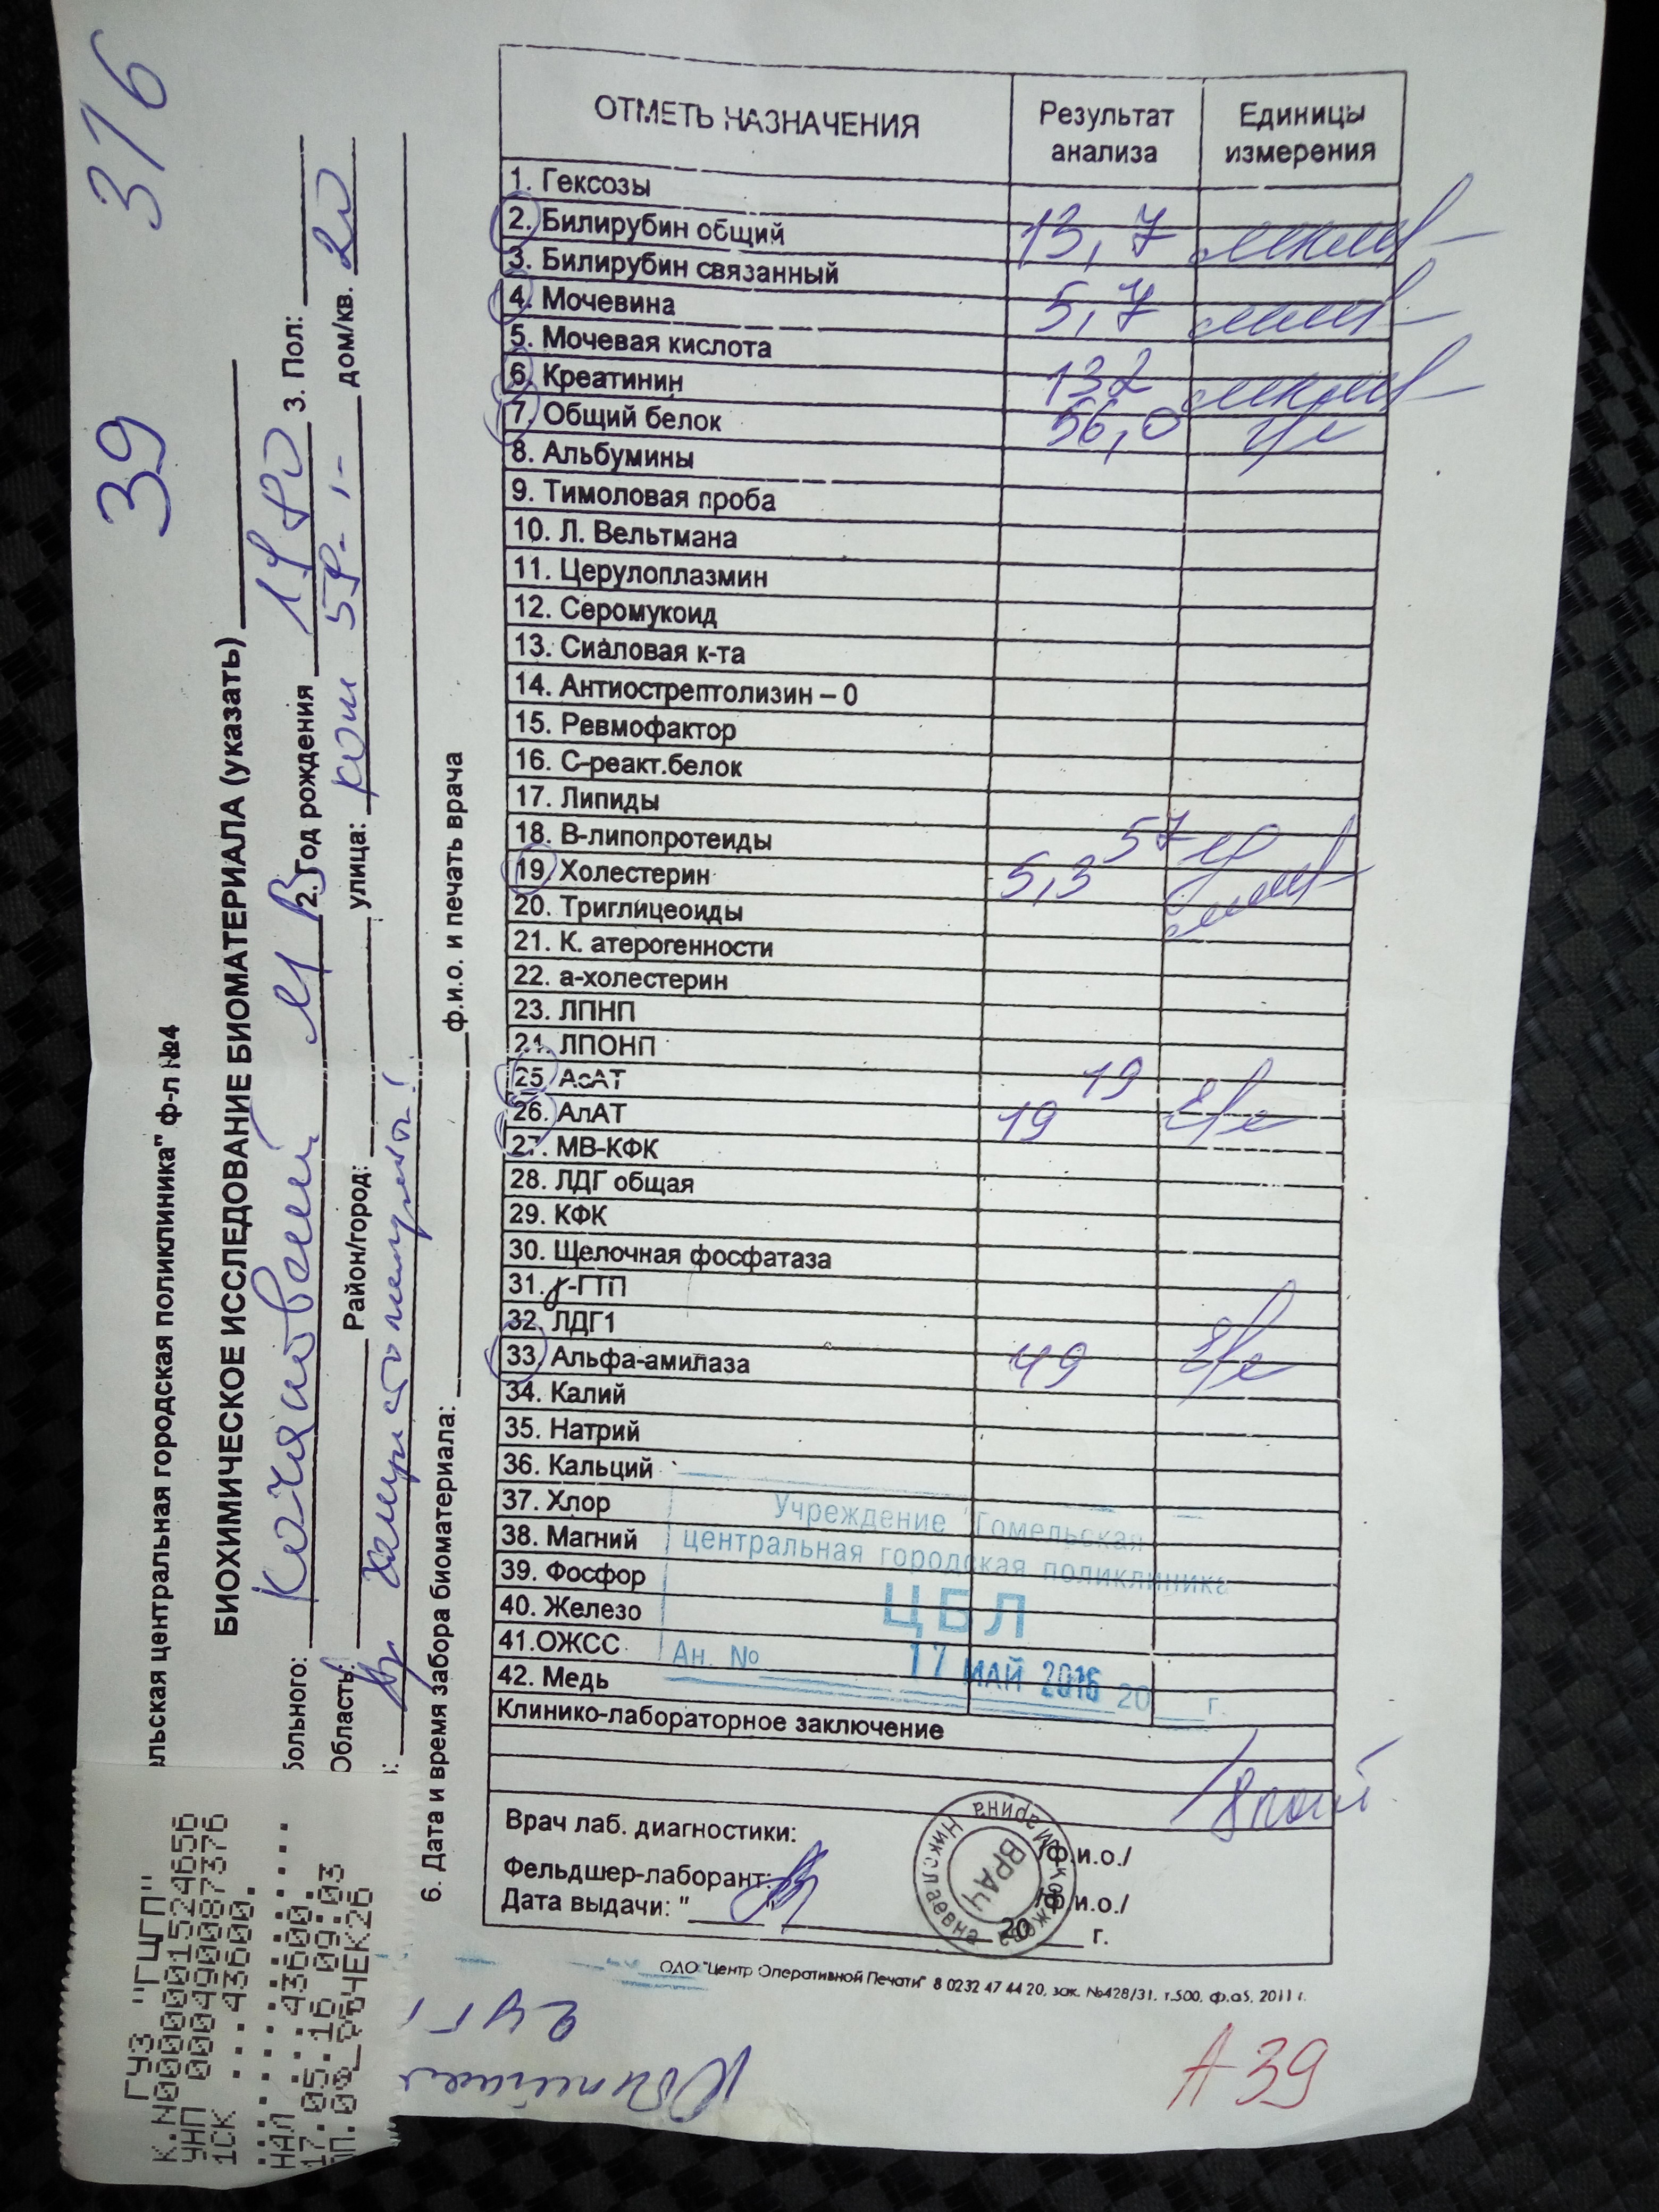 316
39
ельская центральная городская поликлиника" ф-л №4
БИОХИМИЧЕСКОЕ ИССЛЕДОВАНИЕ БИОМАТЕРИАЛА (указать)
больного: М В 2. Год рождения 1980 3. Пол:
Область: Район/город: улица: дом/кв.
6. Дата и время забора биоматериала: ф.и.о. и печать врача
ОТМЕТЬ НАЗНАЧЕНИЯ Результат анализа Единицы измерения
1. Гексозы
2. Билирубин общий 13,7
3. Билирубин связанный
4. Мочевина 5,7
5. Мочевая кислота
6. Креатинин 132
7. Общий белок 56,0 г/л
8. Альбумины
9. Тимоловая проба
10. Л. Вельтмана
11. Церулоплазмин
12. Серомукоид
13. Сиаловая к-та
14. Антиострептолизин – 0
15. Ревмофактор
16. С-реакт.белок
17. Липиды
18. В-липопротеиды 57
19. Холестерин 5,3
20. Триглицеоиды
21. К. атерогенности
22. а-холестерин
23. ЛПНП
24. ЛПОНП
25. АсАТ 19
26. АлАТ 19
27. МВ-КФК
28. ЛДГ общая
29. КФК
30. Щелочная фосфатаза
31. γ-ГТП
32. ЛДГ1
33. Альфа-амилаза 49
34. Калий
35. Натрий
36. Кальций
37. Хлор
38. Магний
39. Фосфор
40. Железо
41.ОЖСС
42. Медь
Учреждение "Гомельская
центральная городская поликлиника
ЦБЛ
Ан. №
17 МАЙ 2016 20 г.
Клинико-лабораторное заключение
Врач лаб. диагностики: /ф.и.о./
Фельдшер-лаборант: /ф.и.о./
Дата выдачи: " 20 г.
ВРАЧ
Марина Николаевна
ОАО "Центр Оперативной Печати" 8 0232 47 44 20, зак. №428/31. т.500, ф.а5, 2011 г.
А39
ГУЗ "ГЦГП"
К.N000000151524656
УНП 000490087376
1СК ...43600.
НАЛ 43600.
17.05.16 09:03
ЧЕК26